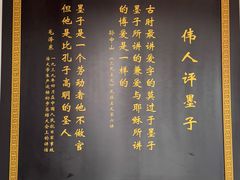 伟人评墨子
古时最讲爱字的莫过于墨子
墨子所讲的兼爱与耶稣所讲
的博爱是一样的
孙中山
墨子是一个劳动者他不做官
但他是比孔子高明的圣人
毛泽东